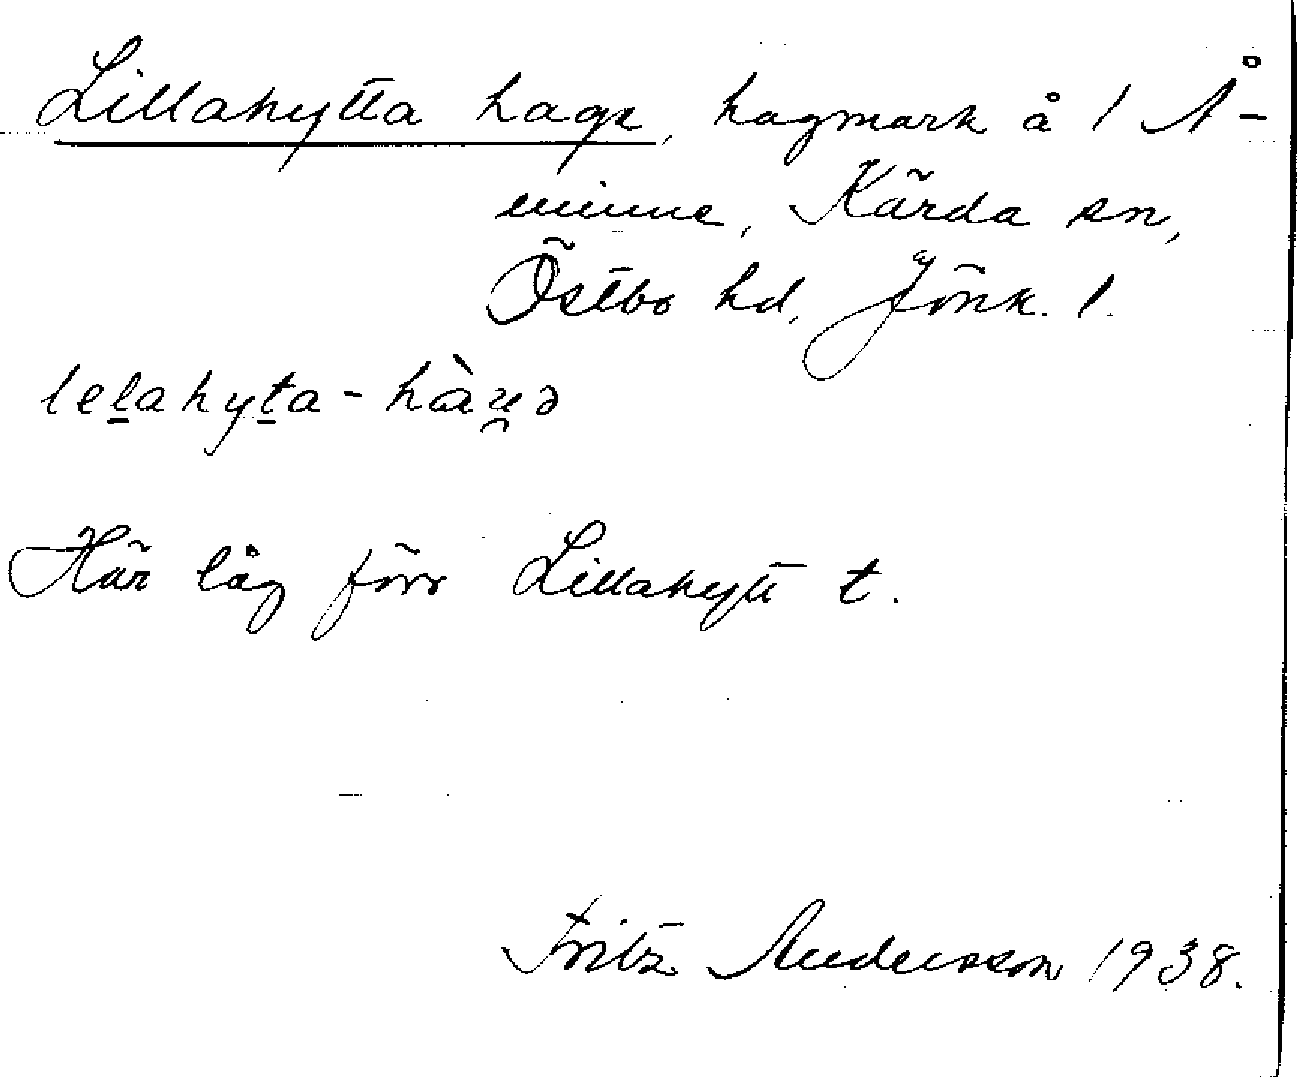 Lillahytta hage, hagmark å 1 Å-
minne, Kärda sn,
Östbo hd, Jönk. l.
lel̲ahyt̲a - hàu̯ə
Här låg förr Lillahytt t.
Fritz Andersson 1938.